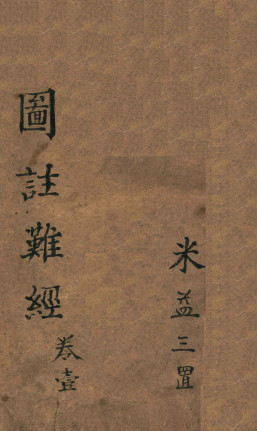 米益三置
圖註難經
卷壹